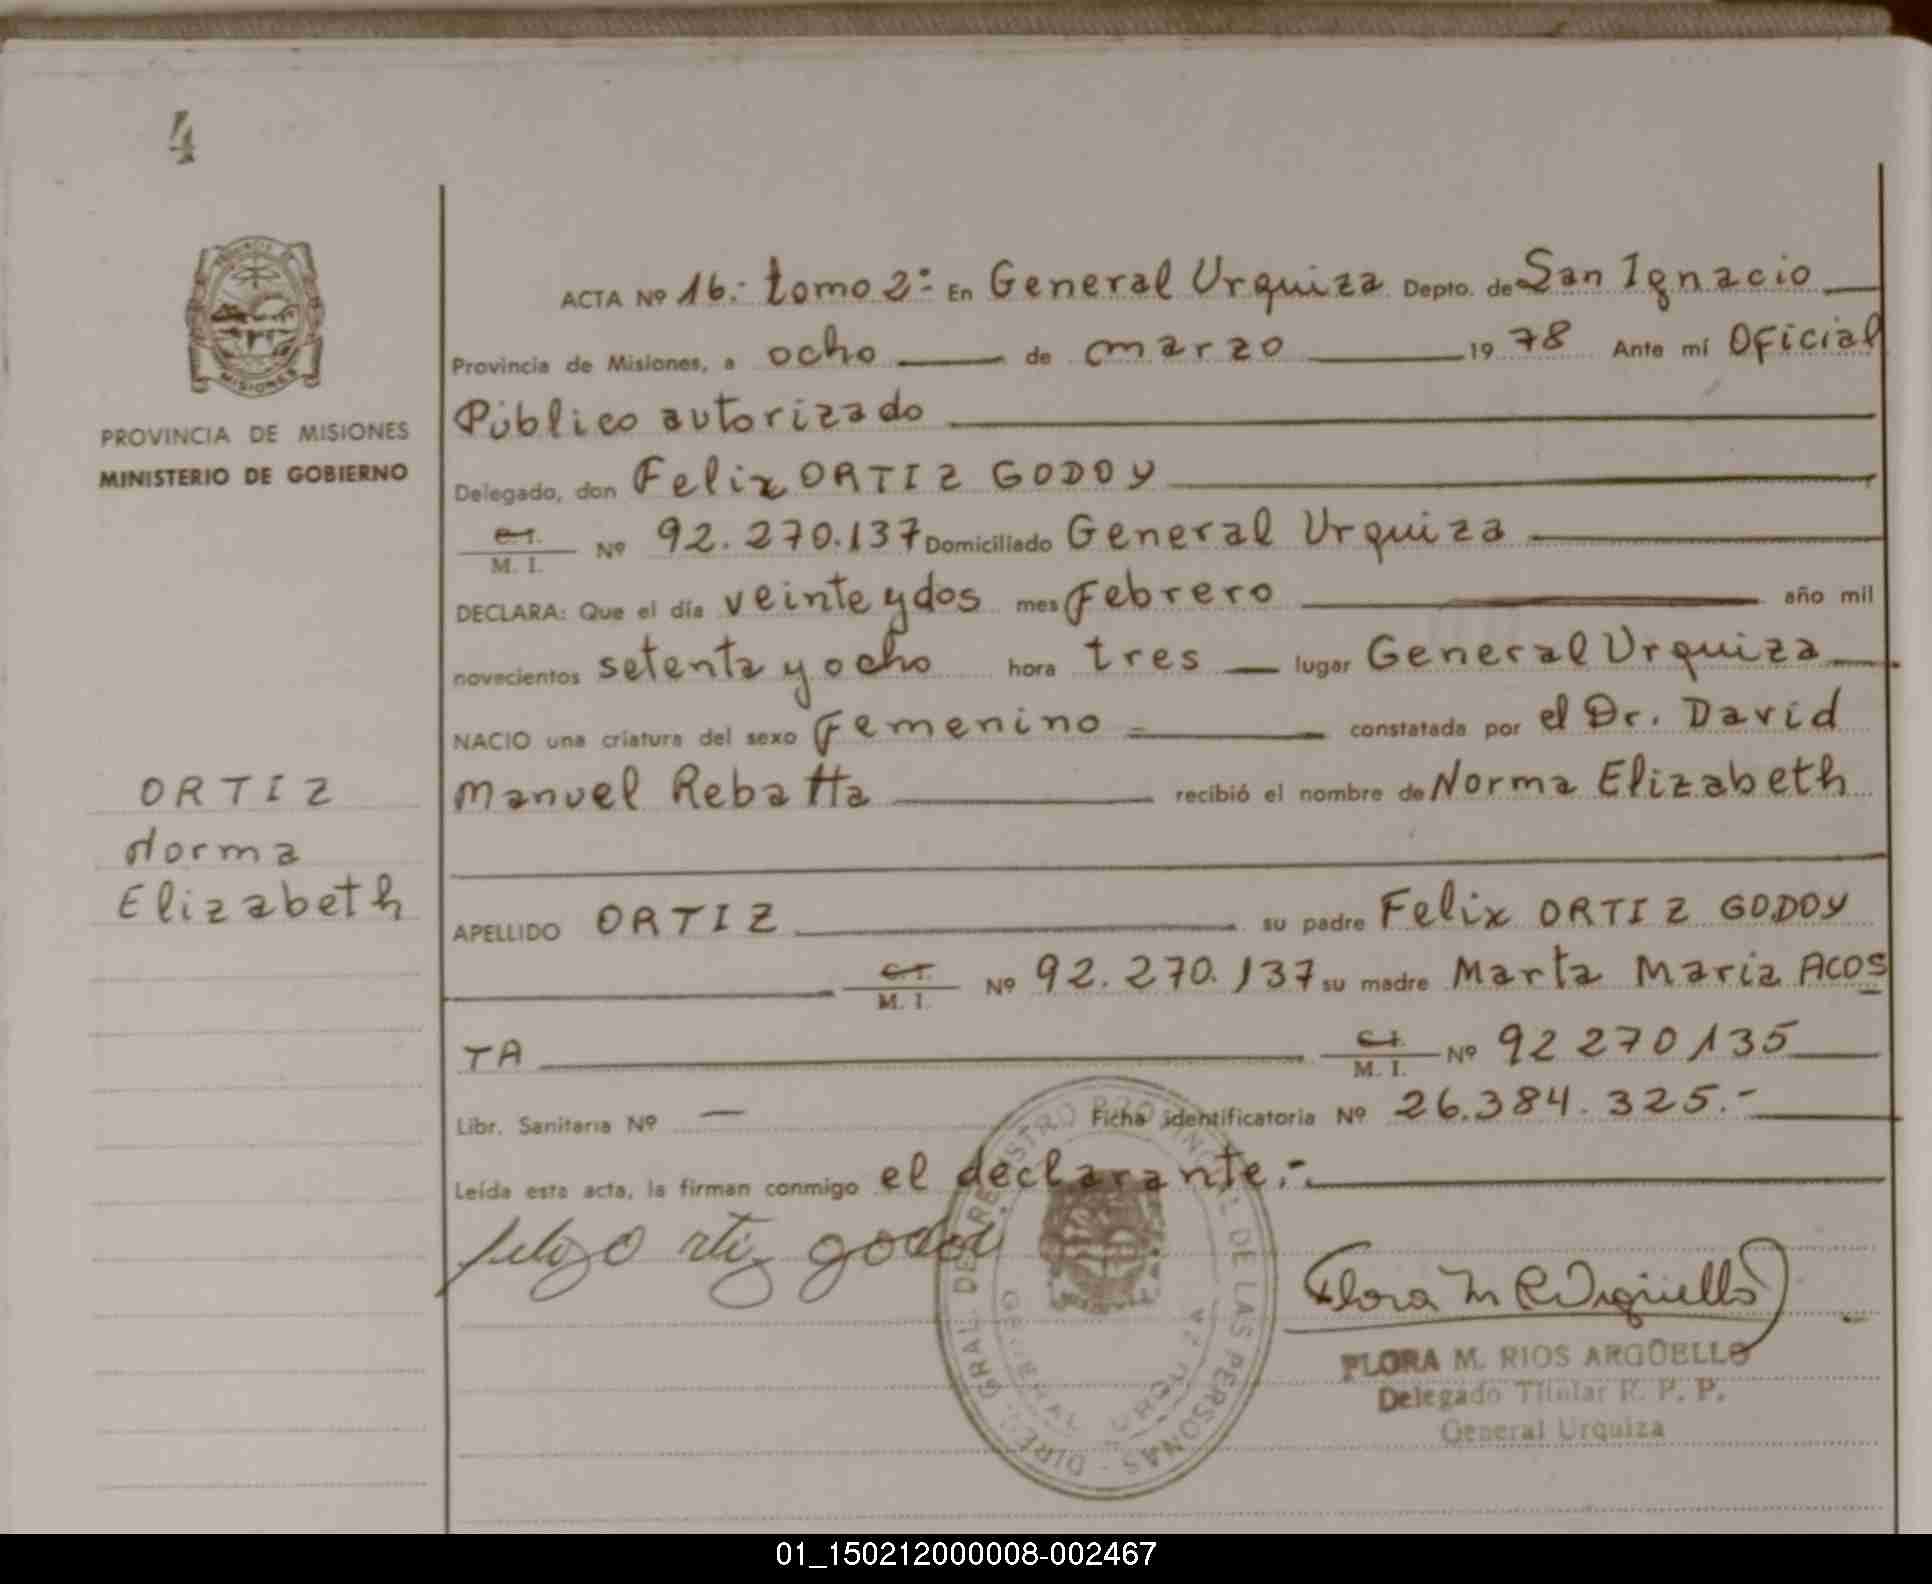 4
PROVINCIA DE MISIONES
MINISTERIO DE GOBIERNO
ORTIZ
Norma
Elizabeth
ACTA Nº 16.- tomo 2º En General Urquiza Depto. de San Ignacio
Provincia de Misiones, a ocho de marzo 1978 Ante mí Oficial
Público autorizado
Delegado, don Felix ORTIZ GODOY
C.I.
M. I. Nº 92.270.137 Domiciliado General Urquiza
DECLARA: Que el día veinte y dos mes Febrero año mil
novecientos setenta y ocho hora tres lugar General Urquiza
NACIO una criatura del sexo Femenino constatada por el Dr. David
Manuel Rebatta recibió el nombre de Norma Elizabeth
APELLIDO ORTIZ su padre Felix ORTIZ GODOY
C.I.
M. I. Nº 92.270.137 su madre Marta Maria ACOS
TA C.I.
M. I. Nº 92 270 135
Libr. Sanitaria Nº — Ficha identificatoria Nº 26.384.325.-
Leída esta acta, la firman conmigo el declarante.-
Felix Ortiz godoi
Flora M R Argüello
FLORA M. RIOS ARGÜELLO
Delegado Titular R. P. P.
General Urquiza
DIREC. GRAL. DE REGISTRO PROVINCIAL DE LAS PERSONAS
GENERAL URQUIZA
MISIONES
01_150212000008-002467